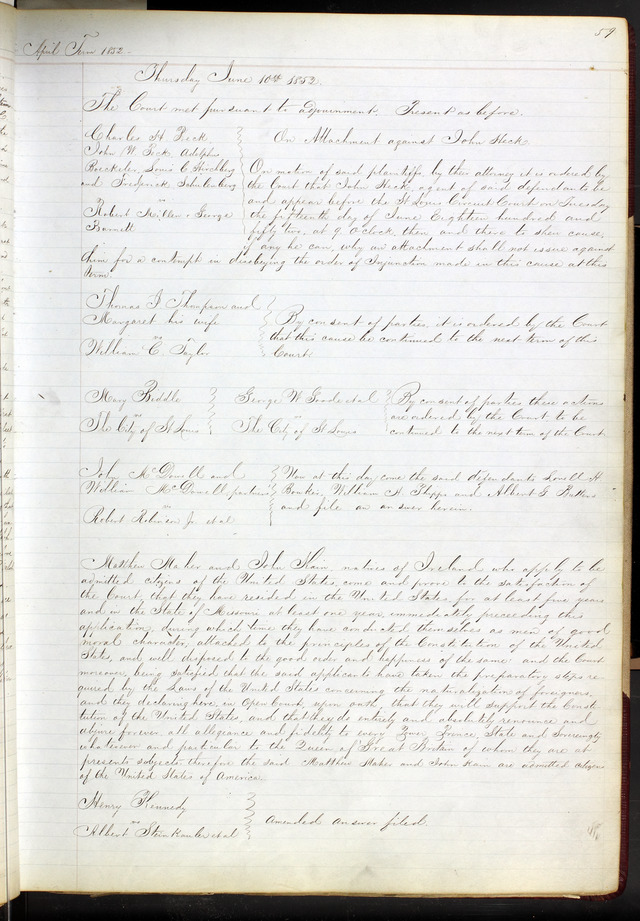 59
April Term 1852.
Thursday June 10th 1852.
The Court met pursuant to adjournment. Present as before.
Charles H Peck
John W. Peck, Adolphe
Louis C Hirchberg
and Frederick
vs
Robert Miller & George
Barnett
On Attachment against John Fleck
On motion of said plaintiffs, by their attorney it is ordered by
the Court that John Fleck, agent of said defendants be
and appear before the St Louis Circuit Court on Tuesday
the fifteenth day of June Eighteen hundred and
fifty two, at 9 O'clock, then and there to shew cause,
if any he can, why an attachment shall not issue against
him for a contempt in disobeying the order of Injunction made in this cause at this
term.
Thomas J Thompson and
Margaret his wife
vs
William C Taylor
By consent of parties, it is ordered by the Court
that this cause be continued to the next term of this
Court.
Mary Biddle
vs
The City of St Louis
George W Goode et al
vs
The City of St Louis
By consent of parties these actions
are ordered by the Court to be
continued to the next term of the Court.
John McDonald and
William McDonald partners
vs
Robert Robinson Jr. et al
Now at this day come the said defendants
William H and Albert G
and file an answer herein.
Matthew Maher and John Kain, natives of Ireland who apply to be
admitted citizens of the United States, come and prove to the satisfaction of
the Court, that they have resided in the United States for at least five years
and in the State of Missouri at least one year, immediately preceeding this
application, during which time they have conducted themselves as men of good
moral character, attached to the principles of the Constitution of the United
States, and well disposed to the good order and happiness of the same and the Court
moreover being satisfied that the said applicants have taken the preparatory steps re-
quired by the Laws of the United States concerning the naturalization of foreigners
and they declaring here, in Open Court, upon oath, that they will support the Consti-
tution of the United States, and that they do entirely and absolutely renounce and
abjure forever all allegiance and fidelity to every Power, Prince, State and Sovereignty
whatsoever and particular to the Queen of Great Britain of whom they are at
present subjects, therefore the said Matthew Maher and John Kain are admitted citizens
of the United States of America.
Henry Kennedy
vs
Albert Steinkauler et al
Amended answer filed.